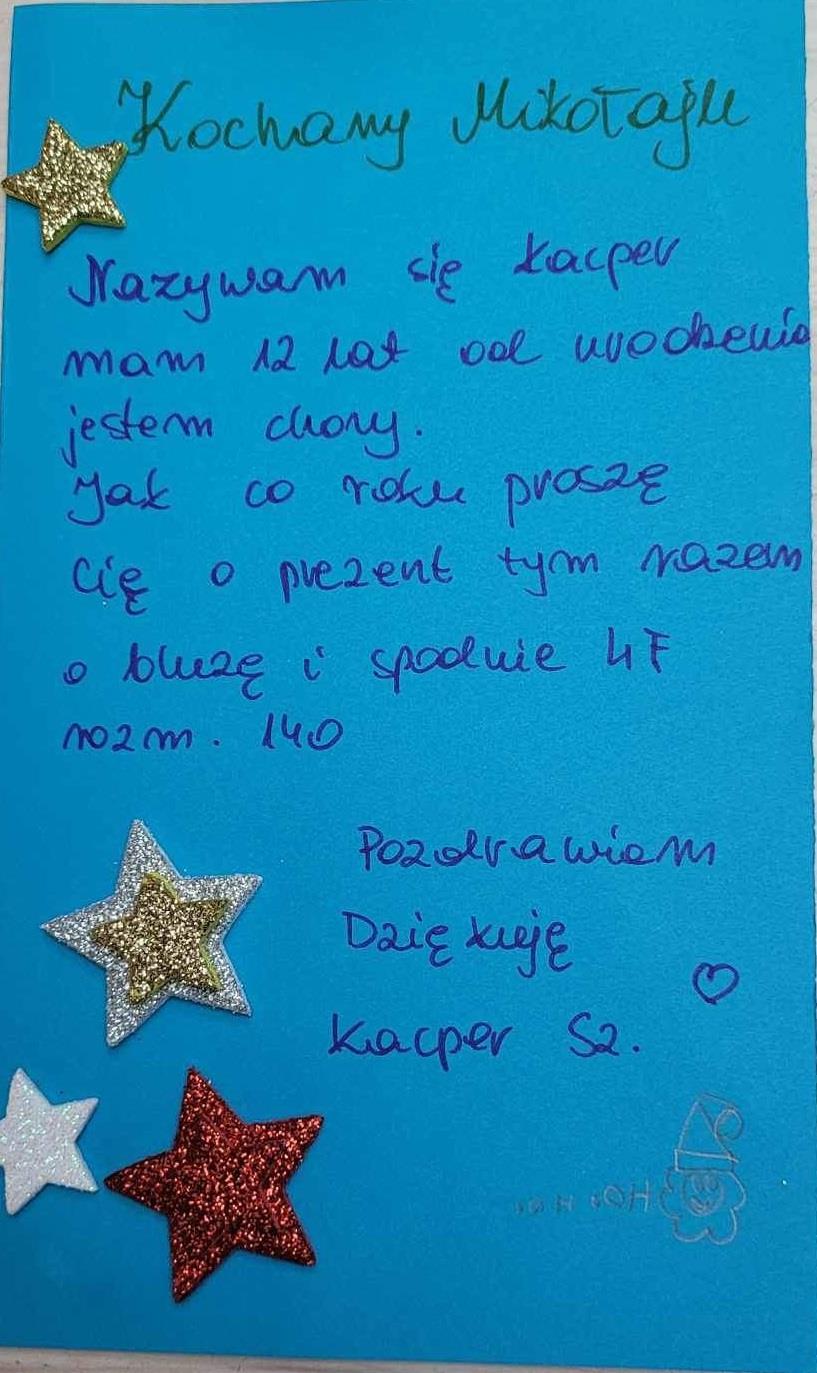 Kochany Mikołaju
Nazywam się Kacper
mam 12 lat od urodzenia
jestem chory.
Jak co roku proszę
Cię o prezent tym razem
o bluzę i spodnie 4F
rozm. 140
Pozdrawiam
Dziękuję
Kacper Sz.